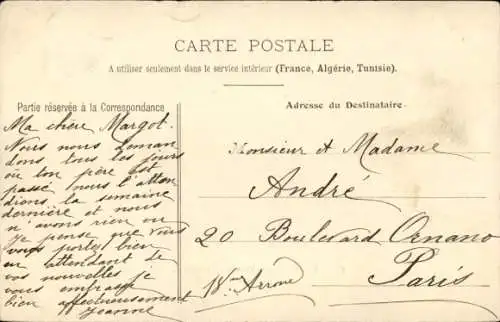 CARTE POSTALE
A utiliser seulement dans le service intérieur (France, Algérie, Tunisie).
Partie réservée à la Correspondance
Adresse du Destinataire
Ma chère Margot.
Nous nous deman
dons tous les jours
où ton père est
passé nous l'atten
dions la semaine
dernière et nous
n'avons rien eu
je pense que vous
vous portez bien
en attendant de
vos nouvelles je
vous embrasse
bien affectueusement
Jeanne
Monsieur et Madame
André
20 Boulevard Ornano
18me Arrond
Paris